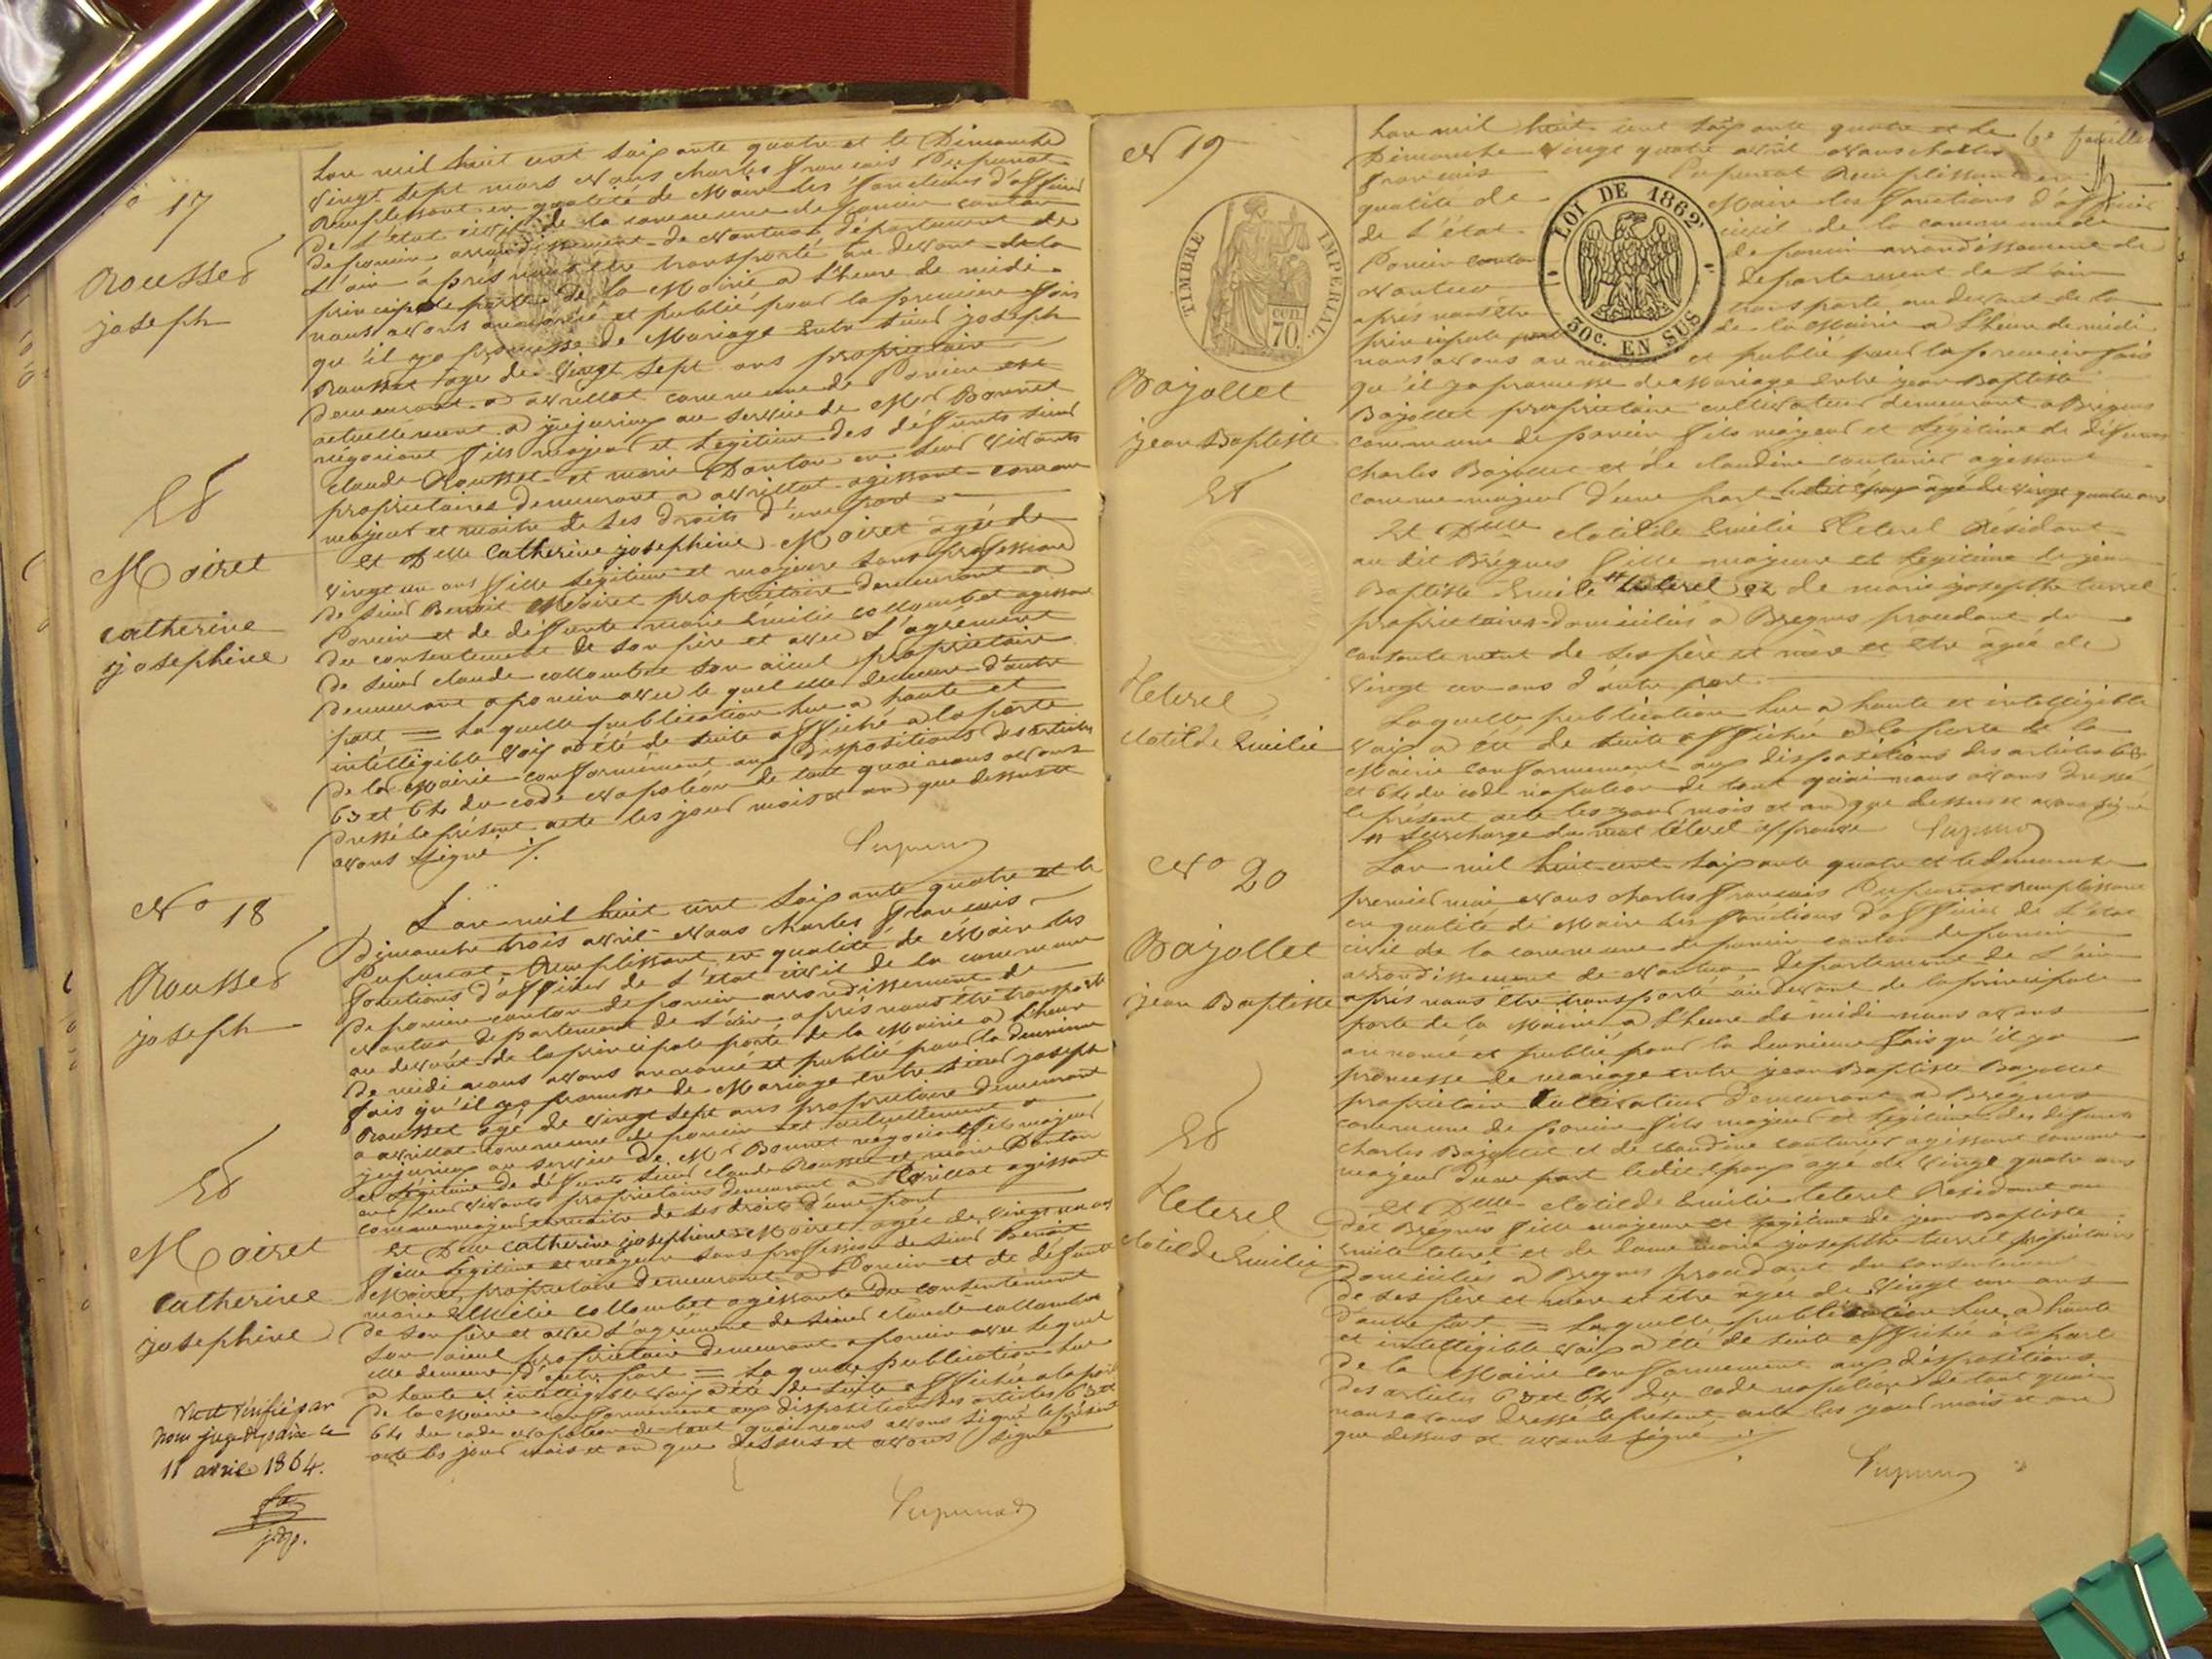 N° 17
Rousset
joseph
Et
Moiret
catherine
josephine
L'an mil huit cent soixante quatre et le Dimanche
vingt sept mars Nous charles francois Pupunat
Remplissant en qualité de Maire les fonctions d'officier
de L'état civil de la commune de poncin canton
de poncin arrondissement de Nantua département de
L'ain après nous être transporté au devant de la
principale porte de la Mairie a L'heure de midi
nous avons annoncé et publié pour la premiere fois
qu'il y a promesse de Mariage Entre sieur joseph
Rousset âgé de vingt sept ans propriétaire
demeurant a avrillat commune de Poncin et
actuellement a jujurieux au service de Mr Bonnet
négociant fils majeur et Légitime des défunts sieur
claude Rousset et marie Danton en leur vivants
propriétaires demeurant a avrillat agissant comme
majeur et maitre de ses droits d'une part
Et Delle Catherine josephine Moiret âgée de
vingt un ans fille Légitime et majeure sans profession
de sieur Benoit Moiret propriétaire demeurant a
Poncin et de défunte marie Emilie collombet agissant
du consentement de son père et avec L'agrément
de sieur claude collombet son aïeul propriétaire
demeurant a poncin avec le quel elle demeure d'autre
part = La quelle publication lue a haute et
intélligible voix a été de suite affiché a la porte
de la Mairie conformément aux dispositions des articles
63 et 64 du code Napoléon de tout quoi nous avons
dressé le présent acte les jour mois et an que dessus et
avons signé /.
Pupunat
N° 18
Rousset
joseph
Et
Moiret
Catherine
josephine
Vu et vérifié par
Nous juge de paix ce
11 avril 1864.
j.d.p.
L'an mil huit cent soixante quatre et le
Dimanche trois avril Nous charles francois
Pupunat Remplissant en qualité de Maire les
fonctions d'officier de L'état civil de la commune
de poncin canton de poncin arrondissement de
Nantua département de L'ain après nous être transporté
au devant de la principale porte de la Mairie a L'heure
de midi nous avons annoncé et publié pour la derniere
fois qu'il y a promesse de Mariage entre sieur joseph
Rousset âgé de vingt sept ans propriétaire demeurant
a avrillat commune de poncin et actuellement a
jujurieux au service de Mr Bonnet négociant fils majeur
et Légitime de défunts sieur claude Rousset et marie Danton
en leur vivants propriétaires demeurant a avrillat agissant
comme majeur et maitre de ses droits d'une part
Et Delle Catherine josephine Moiret âgée de vingt un ans
fille Légitime et majeure sans proffession de sieur Benoit
Moiret propriétaire demeurant a Poncin et de défunte
marie Emilie collombet agissante du consentement
de son père et avec L'agrément de sieur claude collombet
son aïeul propriétaire demeurant a poncin avec le quel
elle demeure d'autre part = La quelle publication lue
a haute et intelligible voix a été de suite affichée a la porte
de la Mairie conformément aux dispositions des articles 63 et
64 du code Napoléon de tout quoi nous avons signé le présent
acte les jour mois et an que dessus et avons signé
Pupunat
N° 19
TIMBRE IMPERIAL
70
Bajollet
jean Baptiste
Et
Teterel
clotilde Emilie
6e feuille
LOI DE 1862
50c. EN SUS
L'an mil huit cent soixante quatre et le
Dimanche vingt quatre avril Nous charles
francois Pupunat Remplissant en
qualité de Maire les fonctions d'officier
de L'état civil de la commune de
Poncin canton de poncin arrondissement de
Nantua département de L'ain
après nous être transporté au devant de la
principale porte de la Mairie a L'heure de midi
nous avons annoncé et publié pour la premiere fois
qu'il y a promesse de Mariage Entre jean Baptiste
Bajollet propriétaire cultivateur demeurant a Brégnes
commune de poncin fils majeur et Légitime de défunts
charles Bajollet et de claudine couturier agissant
comme majeur d'une part ledit époux âgé de vingt quatre ans
Et Delle clotilde Emilie Teterel Résidant
au dit Brégnes fille majeure et Légitime de jean
Baptiste Emile teterel et de marie josephte turrel
propriétaires domiciliés a Bregnes procedant du
consentement de ses père et mère et être âgée de
vingt un ans d'autre part.
Laquelle publication lue a haute et intelligible
voix a été de suite affichée a la porte de la
Mairie conformement aux dispositions des articles 63
et 64 du code napoléon de tout quoi nous avons dressé
le présent acte les jour mois et an que dessus et avons signé
surcharge du mot téterel approuvé Pupunat
N° 20
Bajollet
jean Baptiste
Et
Teterel
clotilde Emilie
L'an mil huit cent soixante quatre et le dimanche
premier mai Nous charles francois Pupunat remplissant
en qualité de Maire les fonctions d'officier de L'état
civil de la commune de poncin canton de poncin
arrondissement de Nantua, département de L'ain
après nous être transporté au devant de la principale
porte de la Mairie a L'heure de midi nous avons
annoncé et publié pour la derniere fois qu'il y a
promesse de mariage entre jean Baptiste Bajollet
propriétaire Cultivateur demeurant a Brégnes
commune de poncin fils majeur et Légitime des défunts
charles Bajollet et de claudine couturier agissant comme
majeur d'une part ledit époux âgé de vingt quatre ans
Et Delle clotilde Emilie teterel Residant au
dit Bregnes fille majeure et Légitime de jean Baptiste
Emile teterel et de dame marie josephte turrel propriétaires
Domiciliés a Bregnes procedant du consentement
de ses père et mère et être âgée de vingt un ans
d'autre part = Laquelle publication lue a haute
et intelligible voix a été de suite affichée a la porte
de la Mairie conformement aux dispositions
des articles 63 et 64 du code napoléon de tout quoi
nous avons dressé le présent acte les jour mois et an
que dessus et avons signé
Pupunat